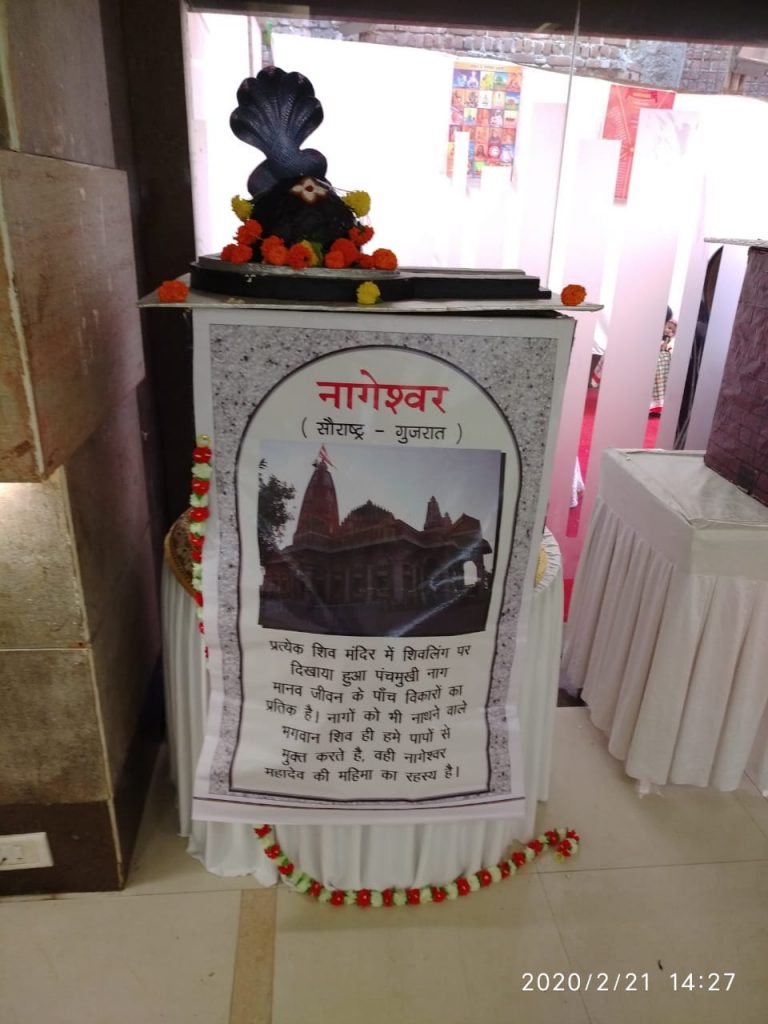 नागेश्वर
( सौराष्ट्र - गुजरात )
प्रत्येक शिव मंदिर में शिवलिंग पर
दिखाया हुआ पंचमुखी नाग
मानव जीवन के पाँच विकारों का
प्रतिक है। नागों को भी नाथने वाले
भगवान शिव ही हमे पापों से
मुक्त करते है, वही नागेश्वर
महादेव की महिमा का रहस्य है।
2020/2/21 14:27